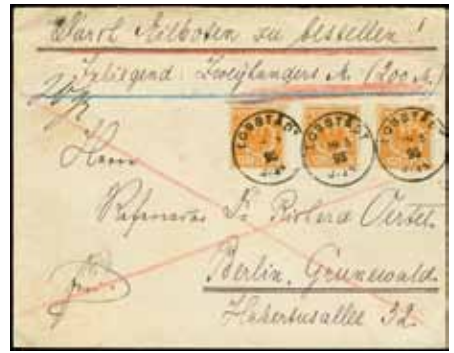 Durch Eilboten zu bestellen!
Inliegend Zweihundert M. (200 M.)
LOBSTÄDT LOBSTÄDT LOBSTÄDT
Herrn
Referendar Dr. Richard Oertel.
Berlin, Grunewald.
Hubertusallee 32.